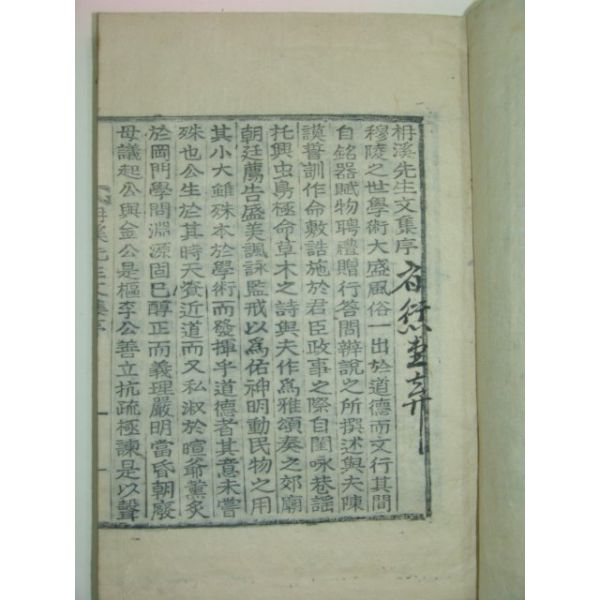 栴溪先生文集序
穆陵之世學術大盛風俗一出於道德而文行其間
自銘器賦物聘禮贈行答問辨說之所撰述與夫陳
謨誓訓作命敷誥施於君臣政事之際自閭咏巷謠
托興虫鳥極命草木之詩與夫作爲雅頌奏之郊廟
朝廷薦告盛美諷詠監戒以爲佑神明動民物之用
其小大雖殊本於學術而發揮乎道德者其意未嘗
殊也公生於其時天資近道而又私淑於暄爺薰炙
於岡門學問淵源固已醇正而義理嚴明當昏朝廢
母議起公與金公是樞李公善立抗疏極諫是以聲
溪先生文集序
一